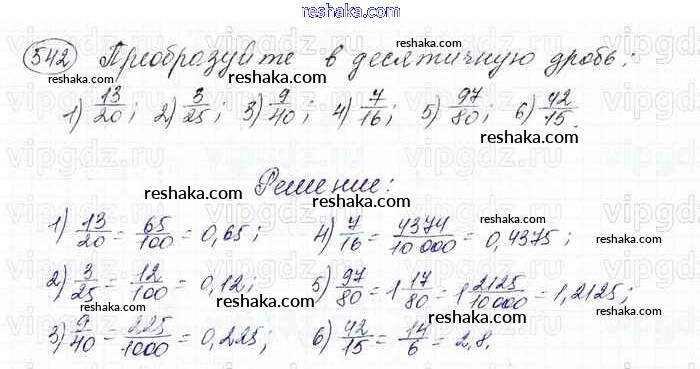 reshaka.com
542 Преобразуйте в десятичную дробь:
reshaka.com
1) 13/20; 2) 3/25; 3) 9/40; 4) 7/16; 5) 97/80; 6) 42/15.
reshaka.com reshaka.com
reshaka.com Решение: reshaka.com
1) 13/20 = 65/100 = 0,65; 4) 7/16 = 4374/10 000 = 0,4375;
reshaka.com reshaka.com
2) 3/25 = 12/100 = 0,12; 5) 97/80 = 1 17/80 = 1 2125/10000 = 1,2125;
reshaka.com reshaka.com
3) 9/40 = 225/1000 = 0,225; 6) 42/15 = 14/6 = 2,8.
reshaka.com reshaka.com
vipgdz.ru